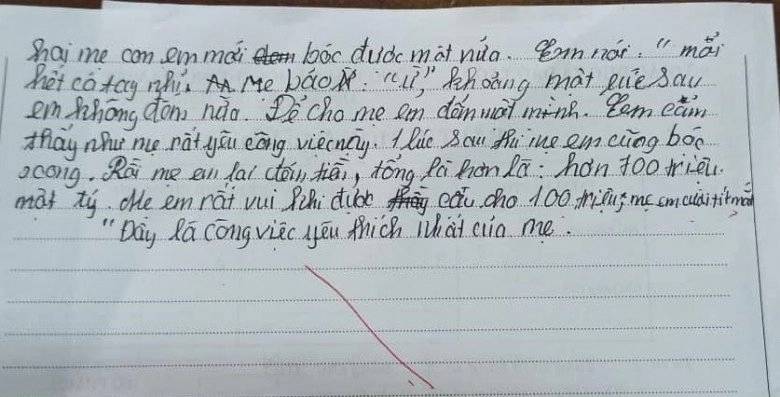 hai mẹ con em mới đem bóc được một nửa. Em nói: " mỏi
hết cả tay nhỉ". Mẹ bảo: "ừ," khoảng một lúc sau
em không đếm nữa. Để cho mẹ em đếm một mình. Em cảm
thấy như mẹ rất yêu công việc này. 1 lúc sau thì mẹ em cũng bóc
xong. Rồi mẹ em lại đếm tiền, tổng là hơn là: hơn 700 triệu.
một tỷ. Mẹ em rất vui khi được thấy cậu cho 100 triệu; mẹ em cười tít mắt
"Đây là công việc yêu thích nhất của mẹ.